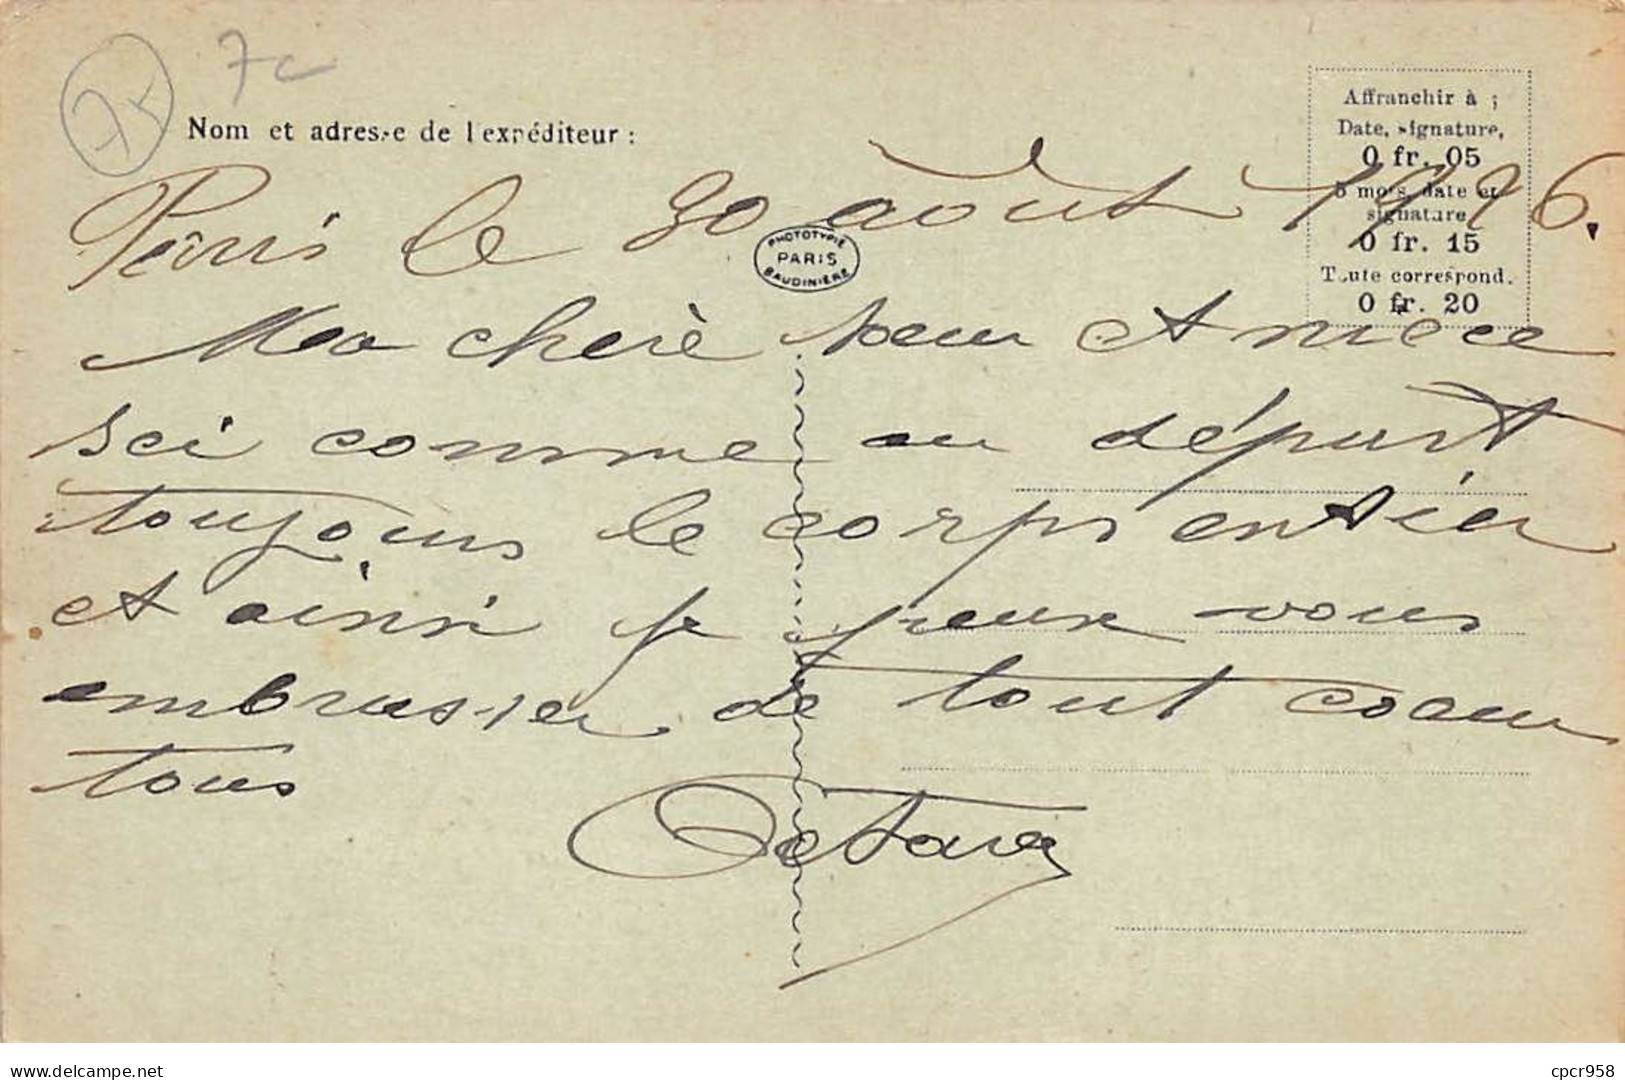 7c
75
Nom et adresse de l'expéditeur :
Affranchir à ;
Date, signature,
0 fr. 05
5 mots, date et
signature
0 fr. 15
Toute correspond.
0 fr. 20
Paris le 30 août 1926.
PHOTOTYPIE
PARIS
BAUDINIÈRE
Ma cherè sœur et niece
ici comme au départ
toujours le corps entier
et ainsi je peux vous
embrasser de tout coeur
tous
Octave
delcampe.net
cpcr958